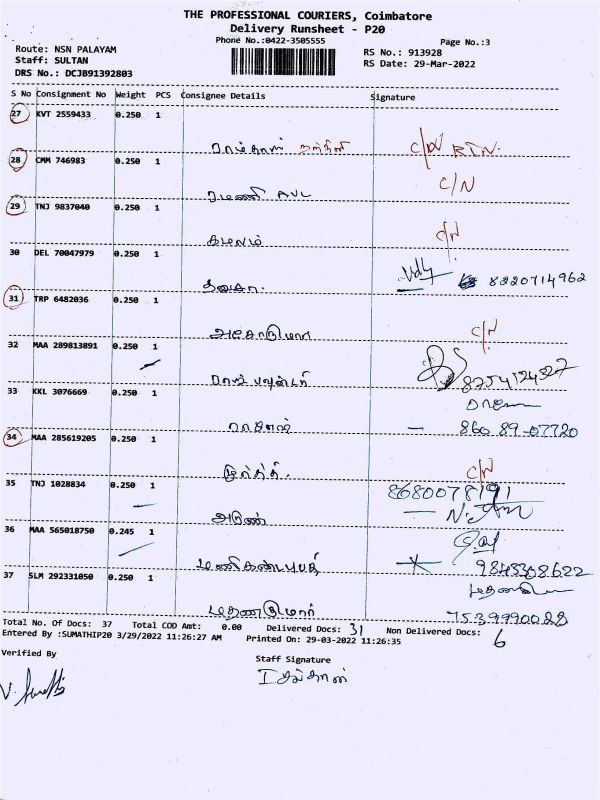 THE PROFESSIONAL COURIERS, Coimbatore
Delivery Runsheet - P20
Phone No.:0422-3505555
Page No.:3
Route: NSN PALAYAM
RS No.: 913928
Staff: SULTAN
RS Date: 29-Mar-2022
DRS No.: DCJB91392803
S No Consignment No Weight PCS Consignee Details Signature
27 KVT 2559433 0.250 1
C/N RTN.
28 CMM 746983 0.250 1
C/N
ரமணி AVL
29 TNJ 9837040 0.250 1
C/N
கமலம்
30 DEL 70047979 0.250 1
8220714962
31 TRP 6482036 0.250 1
C/N
32 MAA 289813891 0.250 1
8754124527
33 KKL 3076669 0.250 1
860 89-07720
34 MAA 285619205 0.250 1
C/N
35 TNJ 1028834 0.250 1
8680078191
அருண்
36 MAA 565018750 0.245 1
9843308622
37 SLM 292331050 0.250 1
7539990028
Total No. Of Docs: 37 Total COD Amt: 0.00 Delivered Docs: 31 Non Delivered Docs: 6
Entered By :SUMATHIP20 3/29/2022 11:26:27 AM Printed On: 29-03-2022 11:26:35
Verified By
Staff Signature